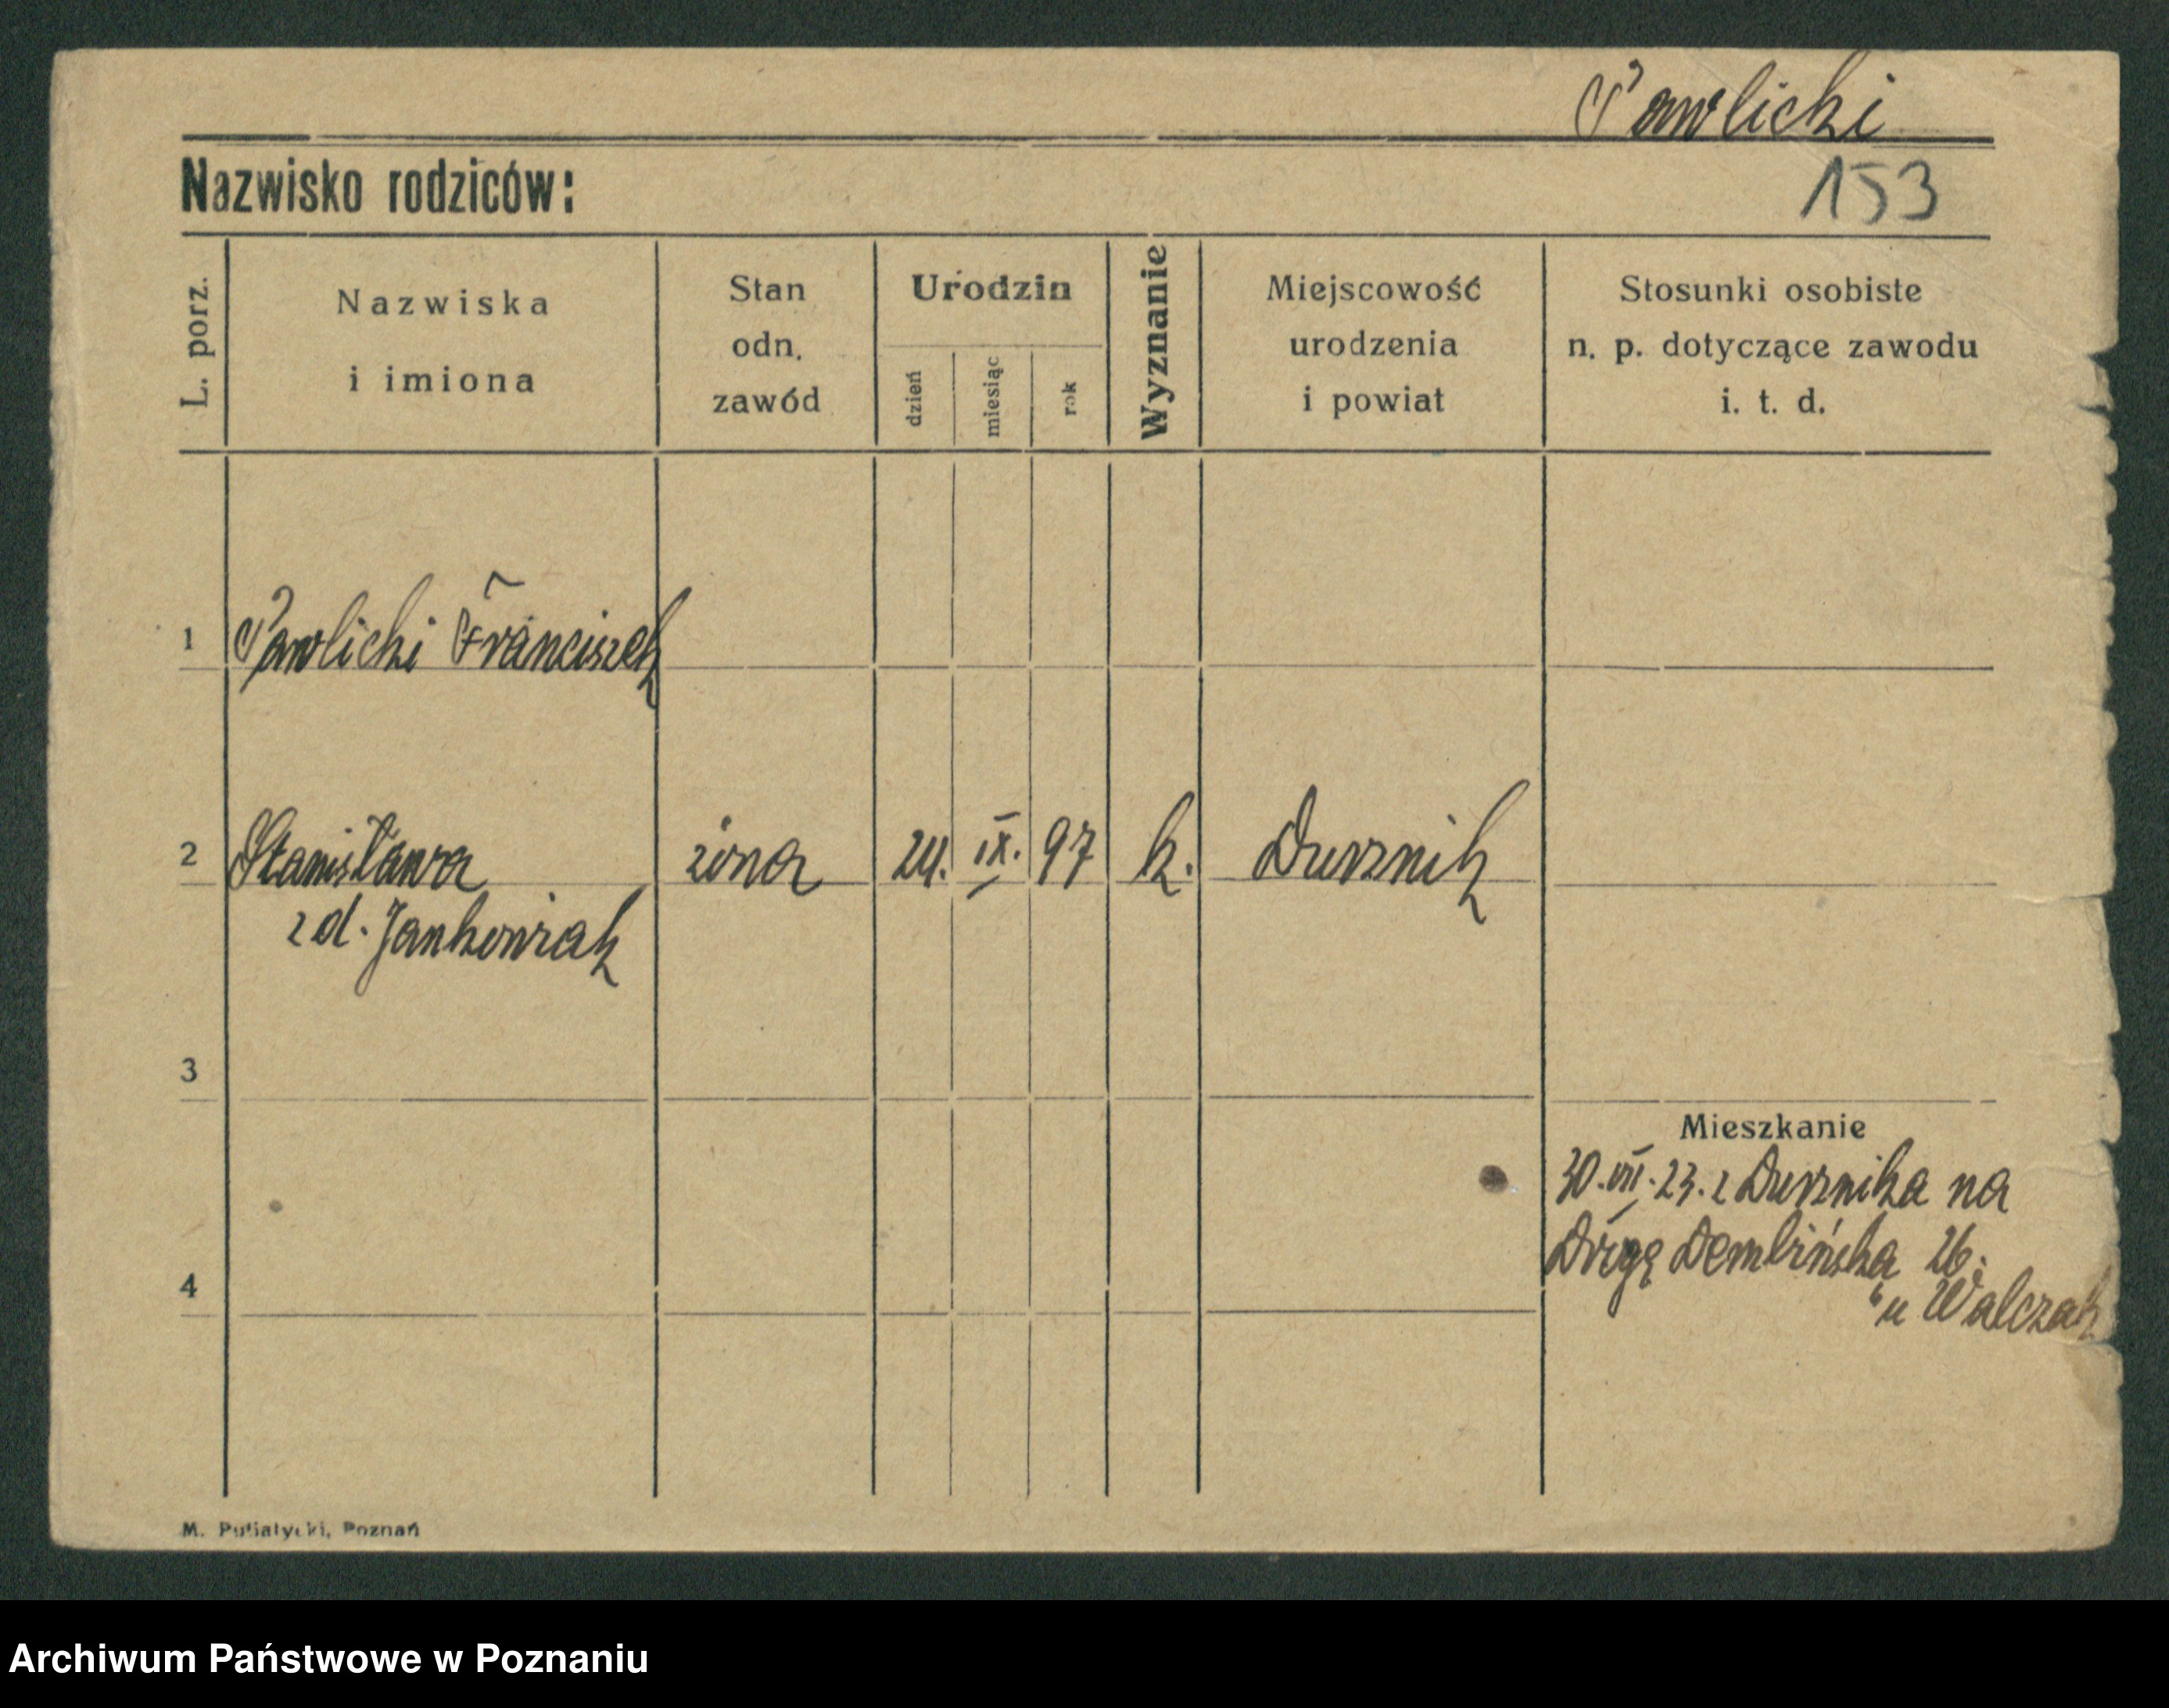 Pawlicki
Nazwisko rodziców:
153
L. porz.
Nazwiska
i imiona
Stan
odn.
zawód
Urodzin
dzień
miesiąc
rok
Wyznanie
Miejscowość
urodzenia
i powiat
Stosunki osobiste
n. p. dotyczące zawodu
i. t. d.
1 Pawlicki Franciszek
2 Stanisława żona 24. IX. 97 k. Durznik
z d. Jankowiak
3
Mieszkanie
30. VII. 23. z Durznika na
Drogę Dembińska 26.
u Walczak
4
M. Putiatycki, Poznań
Archiwum Państwowe w Poznaniu